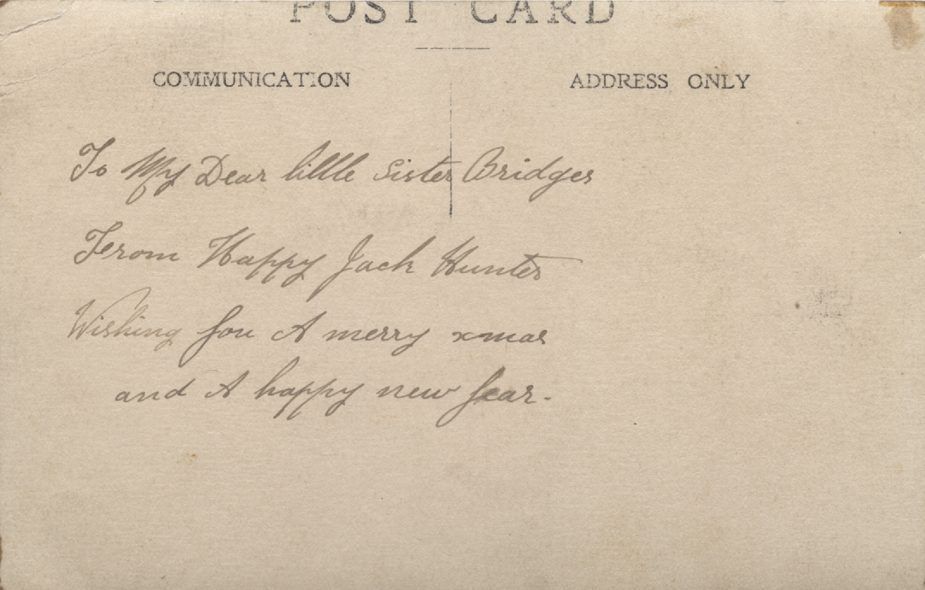 POST CARD
COMMUNICATION
ADDRESS ONLY
To My Dear little sister Bridges
From Happy Jack Hunter
Wishing you A merry xmas
and A happy new year.